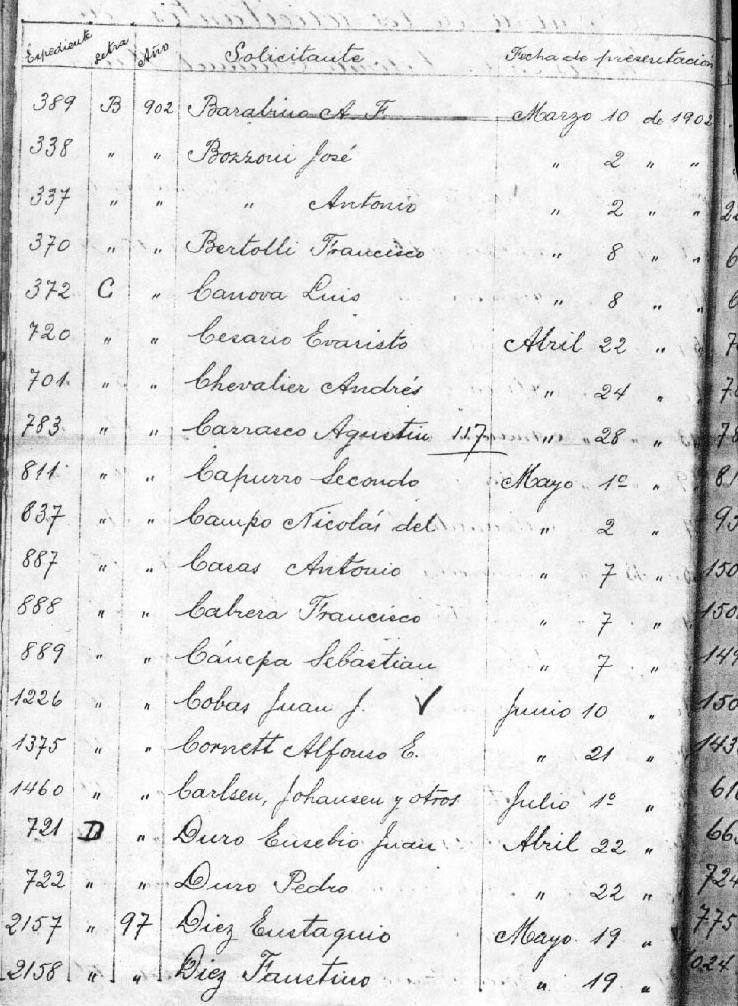 Expediente Letra Año Solicitante Fecha de presentacion
389 B 902 Barabino A F Marzo 10 de 1902
338 " " Bozzoni José " 2 " "
337 " " " Antonio " 2 " "
370 " " Bertolli Francisco " 8 " "
372 C " Canova Luis " 8 " "
720 " " Cesario Evaristo Abril 22 " "
701 " " Chevalier Andrés " 24 "
783 " " Carrasco Agustin 117 " 28 "
811 " " Capurro Secondo Mayo 1º "
837 " " Campo Nicolás del " 2 "
887 " " Casas Antonio " 7 "
888 " " Cabrera Francisco " 7 "
889 " " Cánepa Sebastian " 7 "
1226 " " Cobas Juan J. ✓ Junio 10 "
1375 " " Cornett Alfonso E. " 21 "
1460 " " Carlsen, Johansen y otros Julio 1º "
721 D " Duro Eusebio Juan Abril 22 "
722 " " Duro Pedro " 22 "
2157 " 97 Diez Eustaquio Mayo 19 "
2158 " " Diez Faustino " 19 "